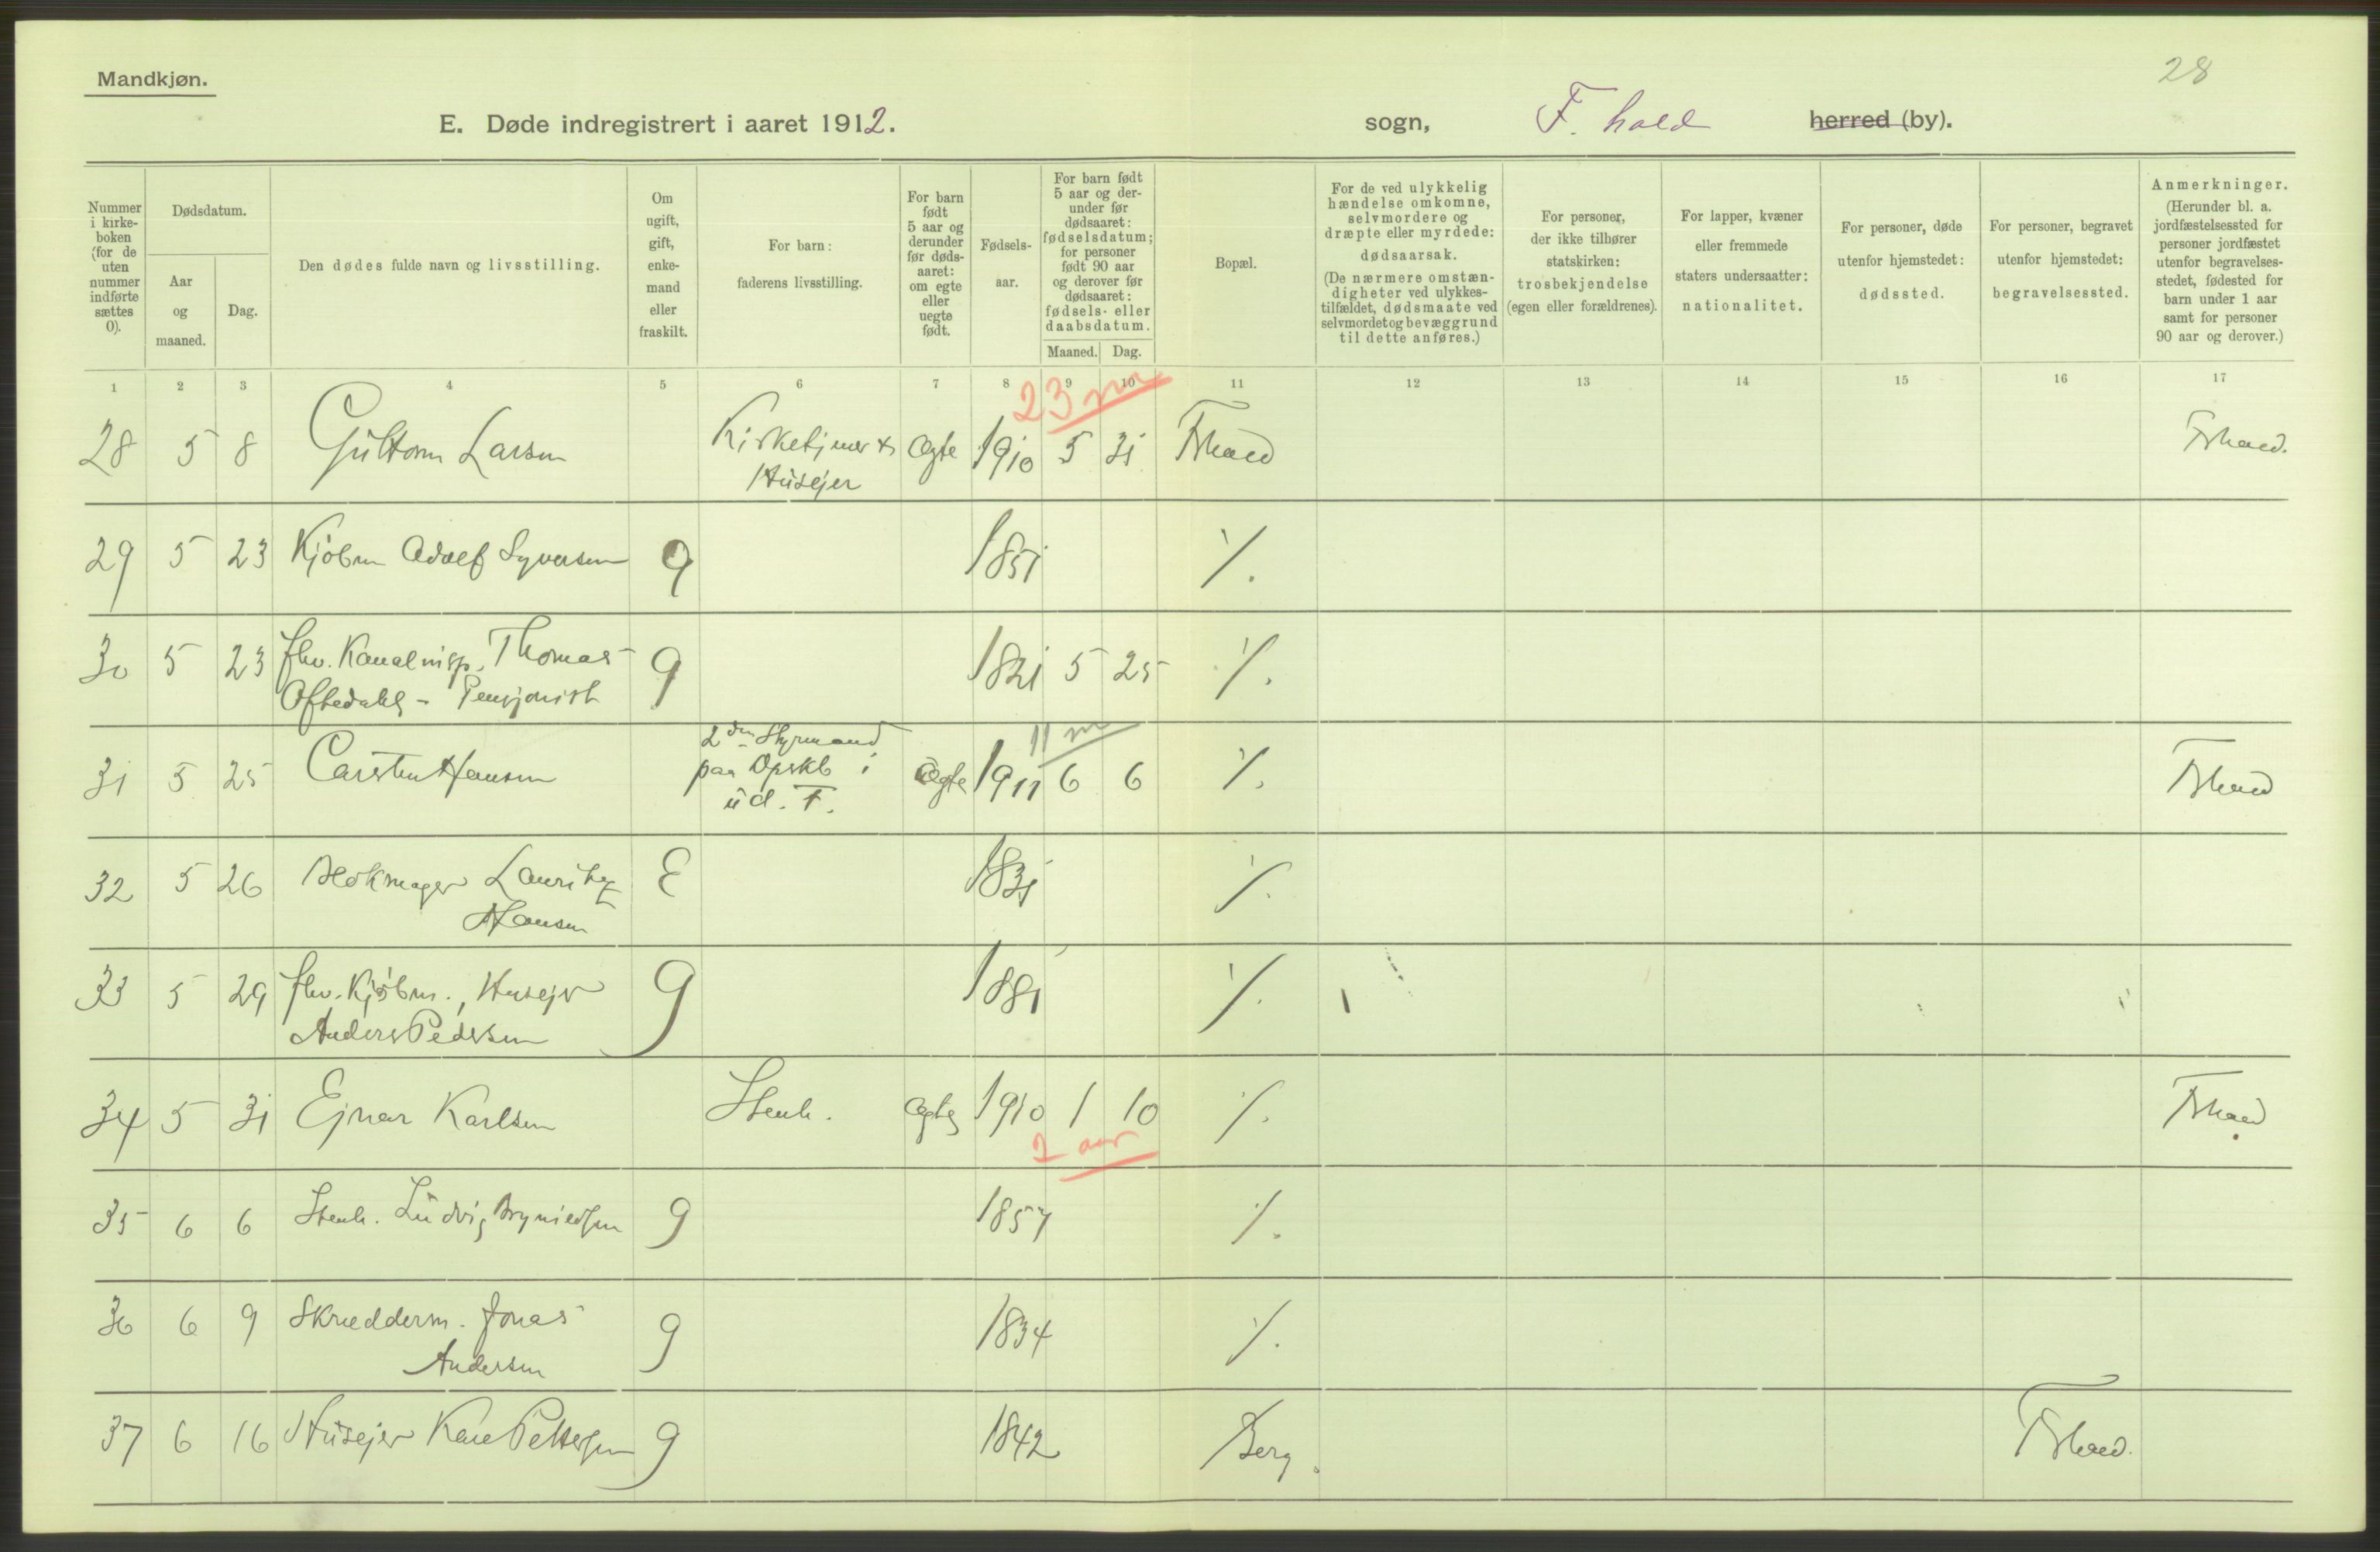 Mandkjøn.
28
E. Døde indregistrert i aaret 1912.
sogn, F.hald herred (by).
Nummer i kirkeboken (for de uten nummer indførte sættes 0).
Dødsdatum.
Aar og maaned.
Dag.
Den dødes fulde navn og livsstilling.
Om ugift, gift, enkemand eller fraskilt.
For barn: faderens livsstilling.
For barn født 5 aar og derunder før dødsaaret: om egte eller uegte født.
Fødselsaar.
For barn født 5 aar og derunder før dødsaaret: fødselsdatum; for personer født 90 aar og derover før dødsaaret: fødsels- eller daabsdatum.
Maaned. Dag.
Bopæl.
For de ved ulykkelig hændelse omkomne, selvmordere og dræpte eller myrdede: dødsaarsak. (De nærmere omstændigheter ved ulykkestilfældet, dødsmaate ved selvmordet og bevæggrund til dette anføres.)
For personer, der ikke tilhører statskirken: trosbekjendelse (egen eller forældrenes).
For lapper, kvæner eller fremmede staters undersaatter: nationalitet.
For personer, døde utenfor hjemstedet: dødssted.
For personer, begravet utenfor hjemstedet: begravelsessted.
Anmerkninger. (Herunder bl. a. jordfæstelsessted for personer jordfæstet utenfor begravelsesstedet, fødested for barn under 1 aar samt for personer 90 aar og derover.)
1 2 3 4 5 6 7 8 9 10 11 12 13 14 15 16 17
23 m
28 5 8 Guttorm Larsen Kirketjener & Husejer Ægte 1910 5 31 Frhald Frhald.
29 5 23 Kjøbm Adolf Syversen g 1851 ⁒
30 5 23 fhv. Kanalinsp. Thomas
Oftedahl - Pensjonist g 1821 5 25 ⁒
11 m
31 5 25 Carsten Hansen 2den Styrmand
paa Opskb i
ud. F. Ægte 1911 6 6 ⁒ Frhald
32 5 26 Blokmager Lauritz
Hansen E 1831 ⁒
33 5 29 fhv. Kjøbm., Husejer
Anders Pedersen g 1881 ⁒
34 5 31 Ejnar Karlsen Stenh. Ægte 1910 1 10 ⁒ Frhald
2 aar
35 6 6 Stenh. Ludvig Brynildsen g 1857 ⁒
36 6 9 Skrædderm. Jonas
Andersen g 1834 ⁒
37 6 16 Husejer Karl Pettersen g 1842 Berg. Frhald.